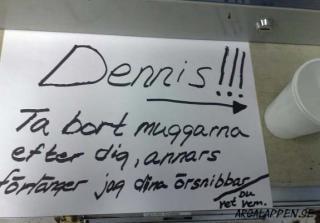 Dennis!!!
Ta bort muggarna
efter dig, annars
förtärer jag dina örsnibbar
Du
vet vem.
ARGALAPPEN.SE